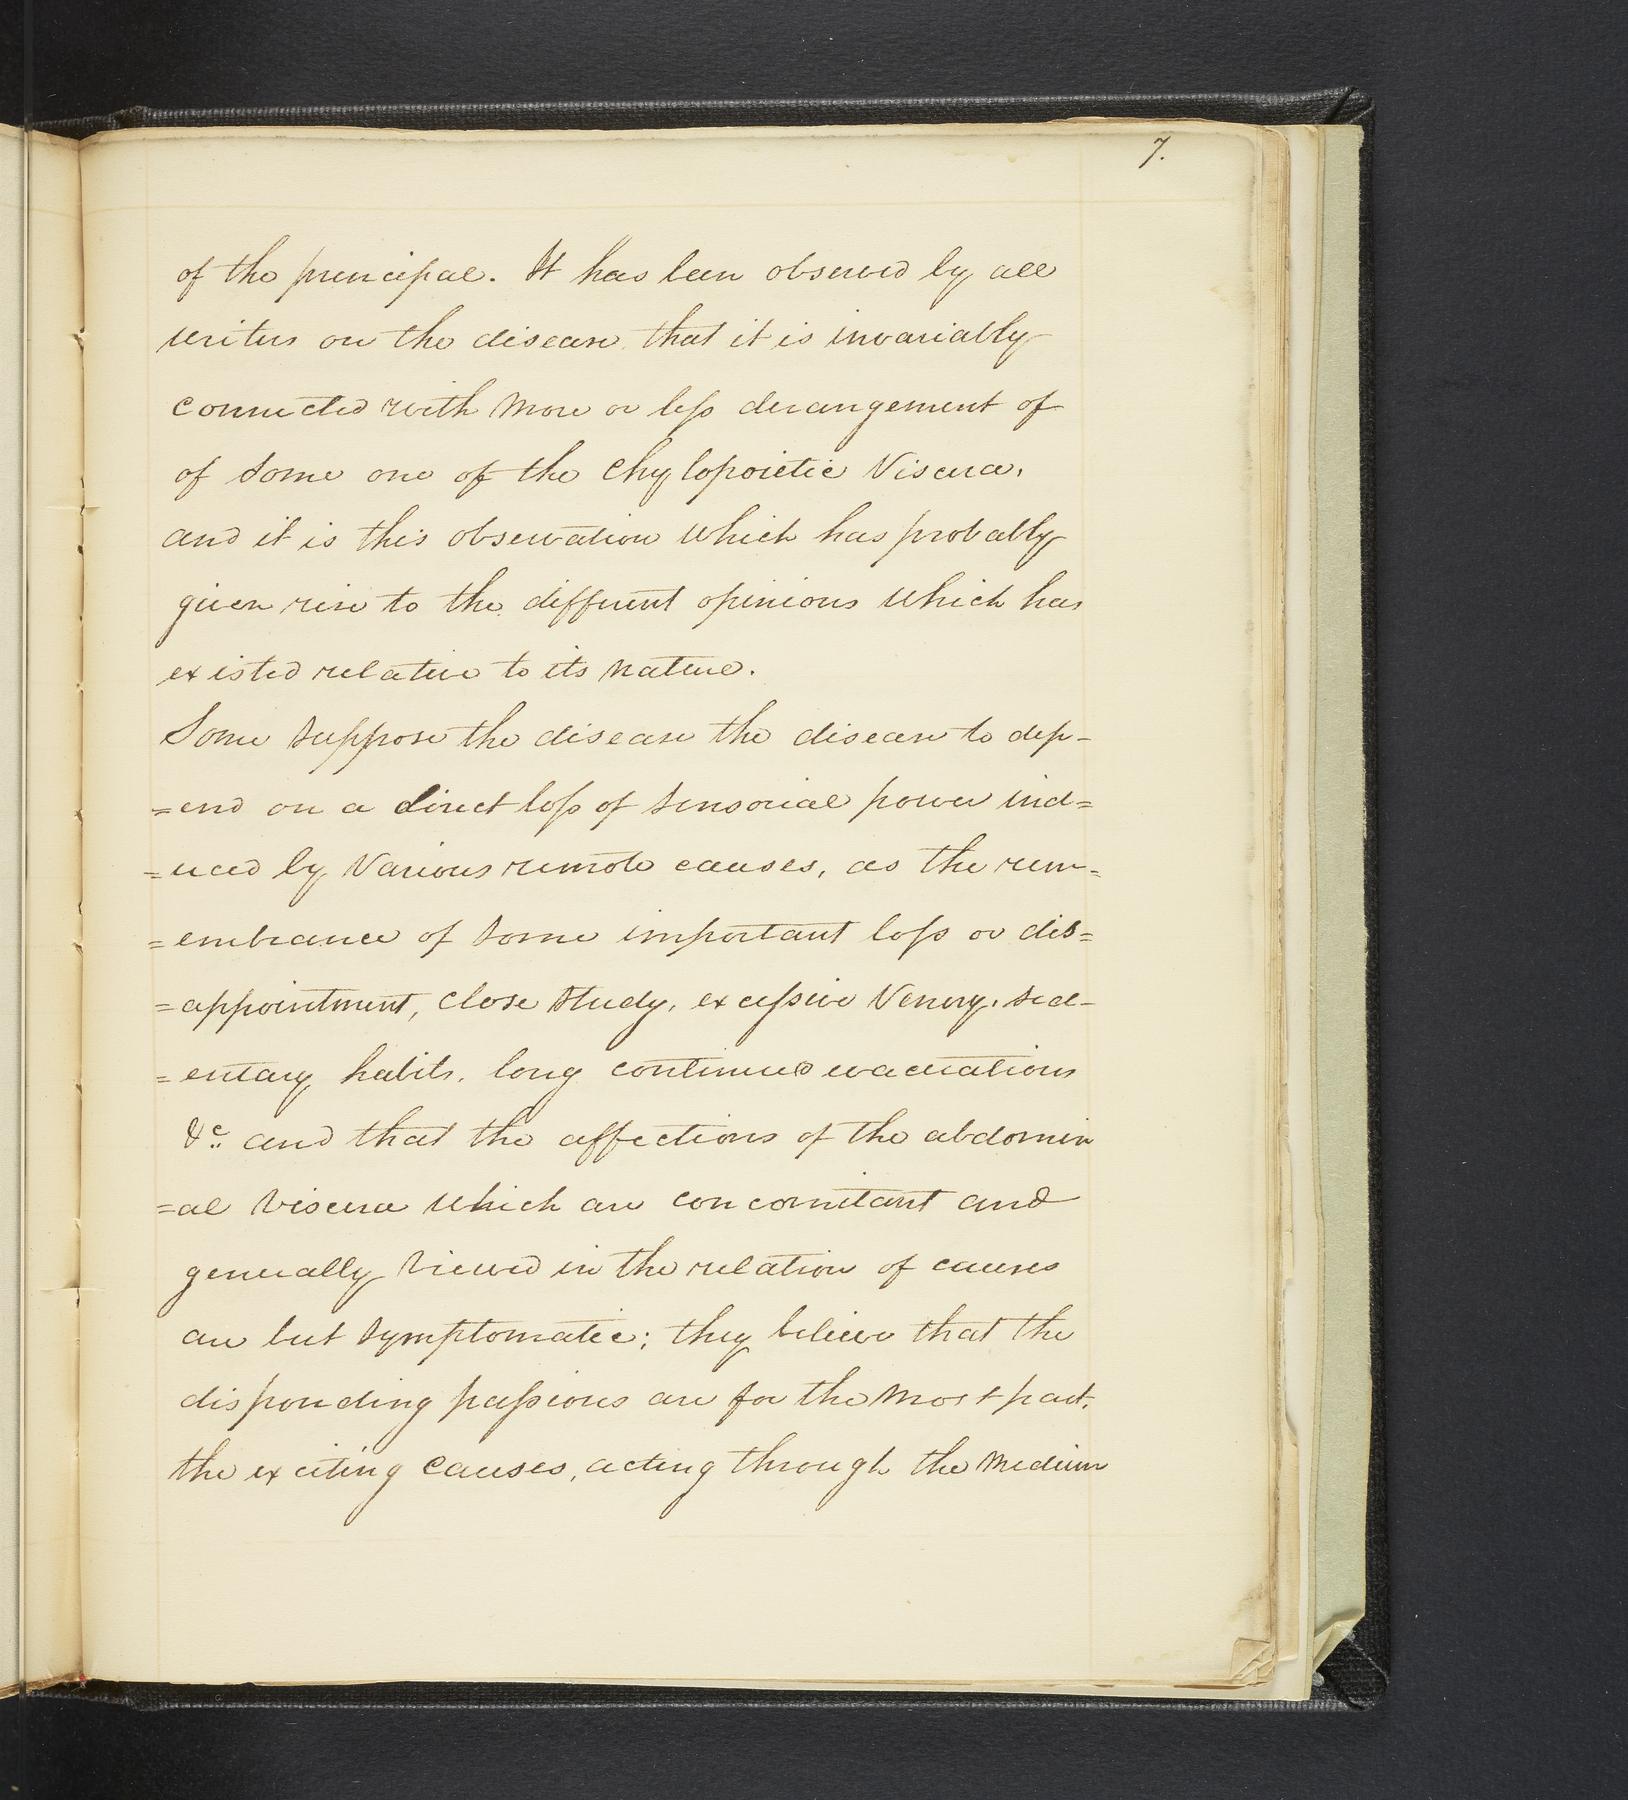 7.
of the principal. It has been observed by all
writers on the disease that it is invariably
connected with more or less derangement of
of some one of the Chylopoietic Viscera.
and it is this observation which has probably
given rise to the different opinions which has
existed relative to its nature.
Some suppose the disease the disease to dep-
=end on a direct loss of sensorial power ind=
=uced by Various remote causes, as the rem=
=embrance of some important loss or dis=
=appointment, close study, excessive Venery, sed-
=entary habits, long continued evacuations
&c. and that the affections of the abdomin
=al viscera which are concomitant and
generally viewed in the relation of causes
are but symptomatic; they believe that the
disponding passions are for the most part,
the exciting causes, acting through the medium